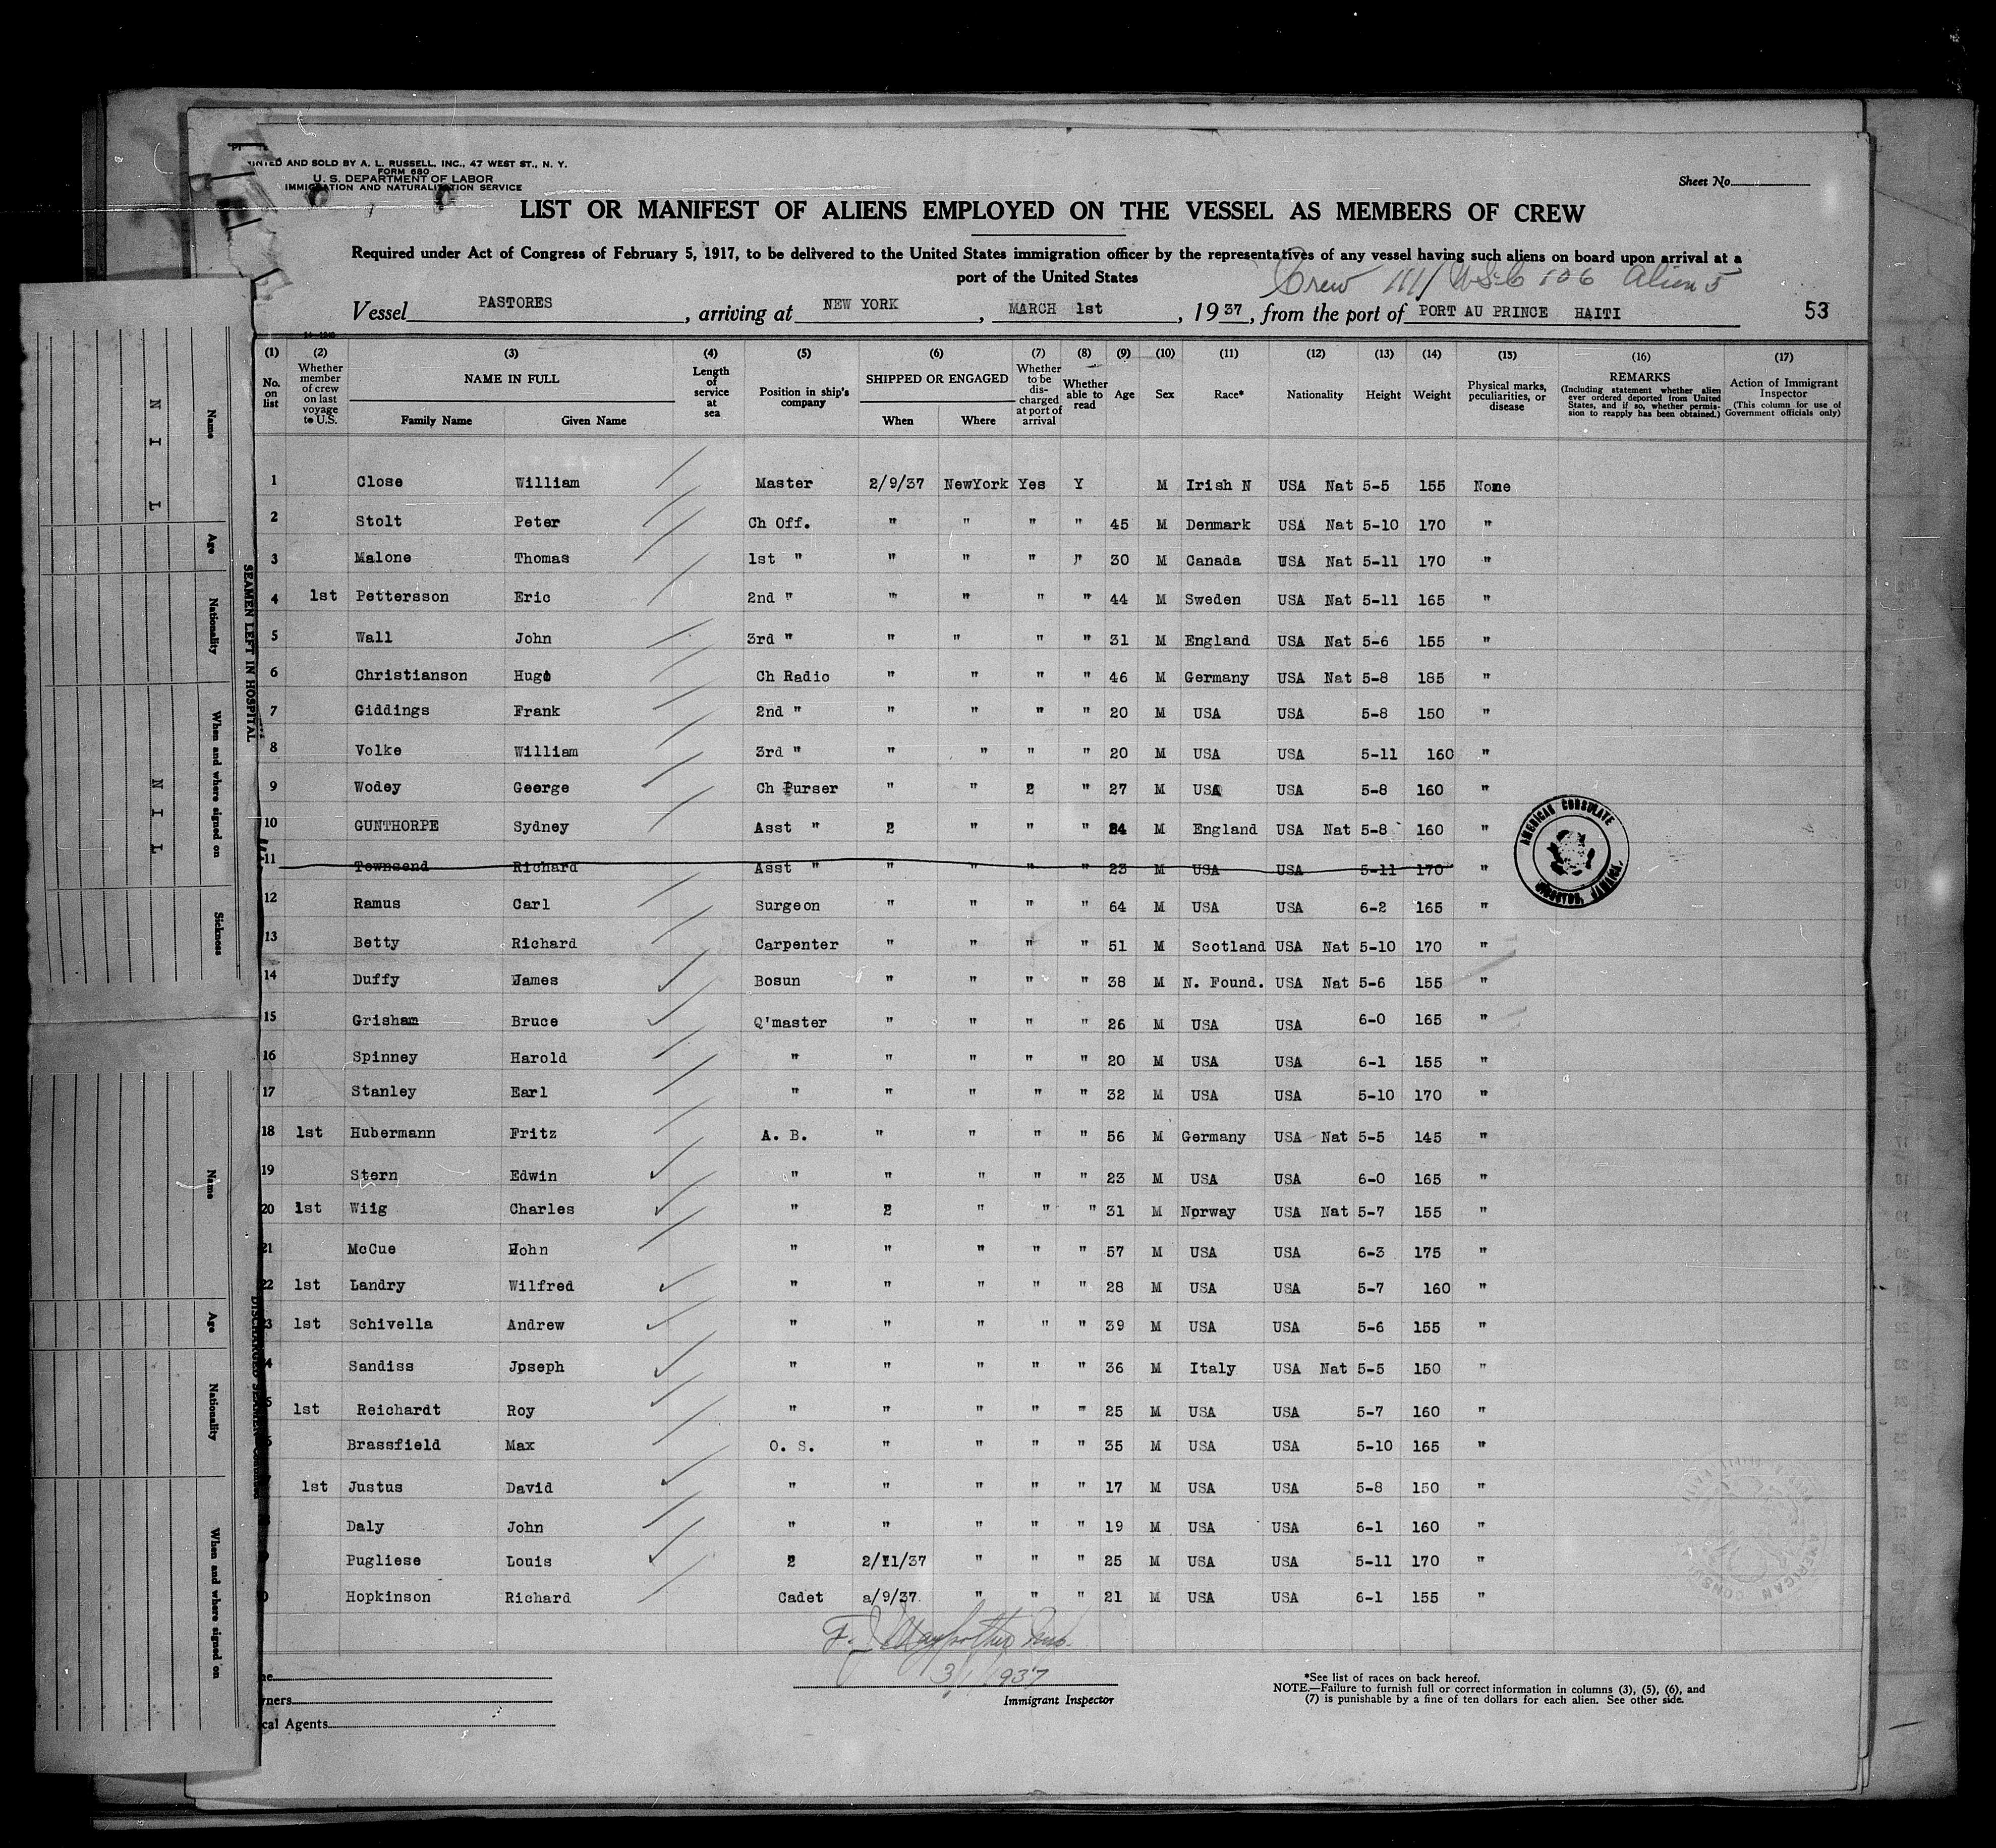 PRINTED AND SOLD BY A. L. RUSSELL, INC., 47 WEST ST., N. Y.
FORM 680
U. S. DEPARTMENT OF LABOR
IMMIGRATION AND NATURALIZATION SERVICE
Sheet No.
LIST OR MANIFEST OF ALIENS EMPLOYED ON THE VESSEL AS MEMBERS OF CREW
Required under Act of Congress of February 5, 1917, to be delivered to the United States immigration officer by the representatives of any vessel having such aliens on board upon arrival at a
port of the United States
Crew 111 USC 106 Alien 5
Vessel PASTORES, arriving at NEW YORK, MARCH 1st, 1937, from the port of PORT AU PRINCE HAITI 53
(1) (2) (3) (4) (5) (6) (7) (8) (9) (10) (11) (12) (13) (14) (15) (16) (17)
No. on list Whether member of crew on last voyage to U.S. NAME IN FULL Family Name Given Name Length of service at sea Position in ship's company SHIPPED OR ENGAGED When Where Whether to be discharged at port of arrival Whether able to read Age Sex Race* Nationality Height Weight Physical marks, peculiarities, or disease REMARKS (Including statement whether alien ever ordered deported from United States, and if so, whether permission to reapply has been obtained.) Action of Immigrant Inspector (This column for use of Government officials only)
1 Close William Master 2/9/37 NewYork Yes Y M Irish N USA Nat 5-5 155 None
2 Stolt Peter Ch Off. " " " " 45 M Denmark USA Nat 5-10 170 "
3 Malone Thomas 1st " " " " " 30 M Canada USA Nat 5-11 170 "
4 1st Pettersson Eric 2nd " " " " " 44 M Sweden USA Nat 5-11 165 "
5 Wall John 3rd " " " " " 31 M England USA Nat 5-6 155 "
6 Christianson Hugo Ch Radio " " " " 46 M Germany USA Nat 5-8 185 "
7 Giddings Frank 2nd " " " " " 20 M USA USA 5-8 150 "
8 Volke William 3rd " " " " " 20 M USA USA 5-11 160 "
9 Wodey George Ch Purser " " 2 " 27 M USA USA 5-8 160 "
10 GUNTHORPE Sydney Asst " 2 " " " 24 M England USA Nat 5-8 160 "
11 Townsend Richard Asst " " " " " 23 M USA USA 5-11 170 "
12 Ramus Carl Surgeon " " " " 64 M USA USA 6-2 165 "
13 Betty Richard Carpenter " " " " 51 M Scotland USA Nat 5-10 170 "
14 Duffy James Bosun " " " " 38 M N. Found. USA Nat 5-6 155 "
15 Grisham Bruce Q'master " " " " 26 M USA USA 6-0 165 "
16 Spinney Harold " " " " " 20 M USA USA 6-1 155 "
17 Stanley Earl " " " " " 32 M USA USA 5-10 170 "
18 1st Hubermann Fritz A. B. " " " " 56 M Germany USA Nat 5-5 145 "
19 Stern Edwin " " " " " 23 M USA USA 6-0 165 "
20 1st Wiig Charles " 2 " " " 31 M Norway USA Nat 5-7 155 "
21 McCue John " " " " " 57 M USA USA 6-3 175 "
22 1st Landry Wilfred " " " " " 28 M USA USA 5-7 160 "
3 1st Schivella Andrew " " " " " 39 M USA USA 5-6 155 "
4 Sandiss Joseph " " " " " 36 M Italy USA Nat 5-5 150 "
5 1st Reichardt Roy " " " " " 25 M USA USA 5-7 160 "
Brassfield Max O. S. " " " " 35 M USA USA 5-10 165 "
1st Justus David " " " " " 17 M USA USA 5-8 150 "
Daly John " " " " " 19 M USA USA 6-1 160 "
Pugliese Louis 2 2/11/37 " " " 25 M USA USA 5-11 170 "
0 Hopkinson Richard Cadet a/9/37. " " " 21 M USA USA 6-1 155 "
AMERICAN CONSULATE
KINGSTON, JAMAICA.
3/1/1937
Immigrant Inspector
*See list of races on back hereof.
NOTE.—Failure to furnish full or correct information in columns (3), (5), (6), and
(7) is punishable by a fine of ten dollars for each alien. See other side.
ners
cal Agents
SEAMEN LEFT IN HOSPITAL
Name Age Nationality When and where signed on Sickness
NIL
NIL
Name Age Nationality When and where signed on